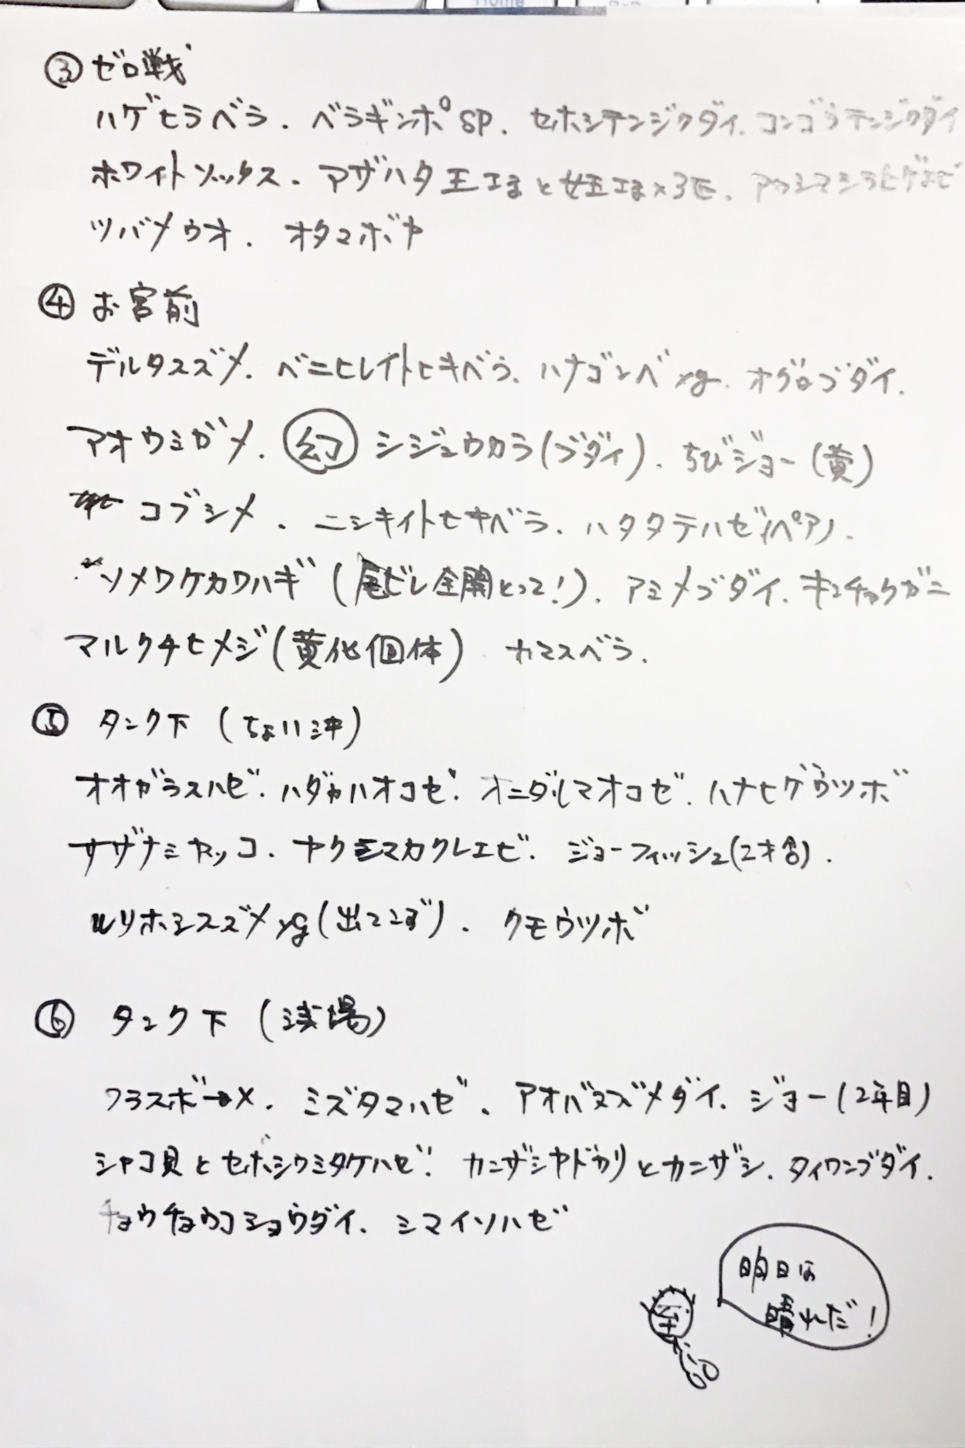 ③ ゼロ戦
ハゲヒラベラ. ベラギンポSP. セホシテンジクダイ. コンゴウテンジクダイ
ホワイトソックス. アザハタ 王 と ×3匹. アカシマシラヒゲエビ
ツバメウオ. オタマボヤ
④ お宮前
デルタスズメ. ベニヒレイトヒキベラ. ハナゴンベyg. オグロブダイ.
アオウミガメ. 幻 シジュウカラ(ブダイ). ちびジョー(黄)
コブシメ. ニシキイトヒキベラ. ハタタテハゼ(ペア).
ソメワケカワハギ(尾ビレ全開とって!). アミメブダイ. キンチャクガニ
マルクチヒメジ(黄化個体) カマスベラ.
⑤ タンク下 (ちょい沖)
オオガラスハゼ. ハダカハオコゼ. オニダルマオコゼ. ハナヒゲウツボ
サザナミヤッコ. ヤクシマカクレエビ. ジョーフィッシュ(2才舎).
ルリホシスズメyg(出てこず). クモウツボ
⑥ タンク下 (浅場)
フラスボーメ. ミズタマハゼ. アオバスズメダイ. ジョー(2年目)
シャコ貝とセボシウミタケハゼ. カンザシヤドカリとカンザシ. タイワンブダイ.
チョウチョウコショウダイ. シマイソハゼ
明日は
晴れだ!